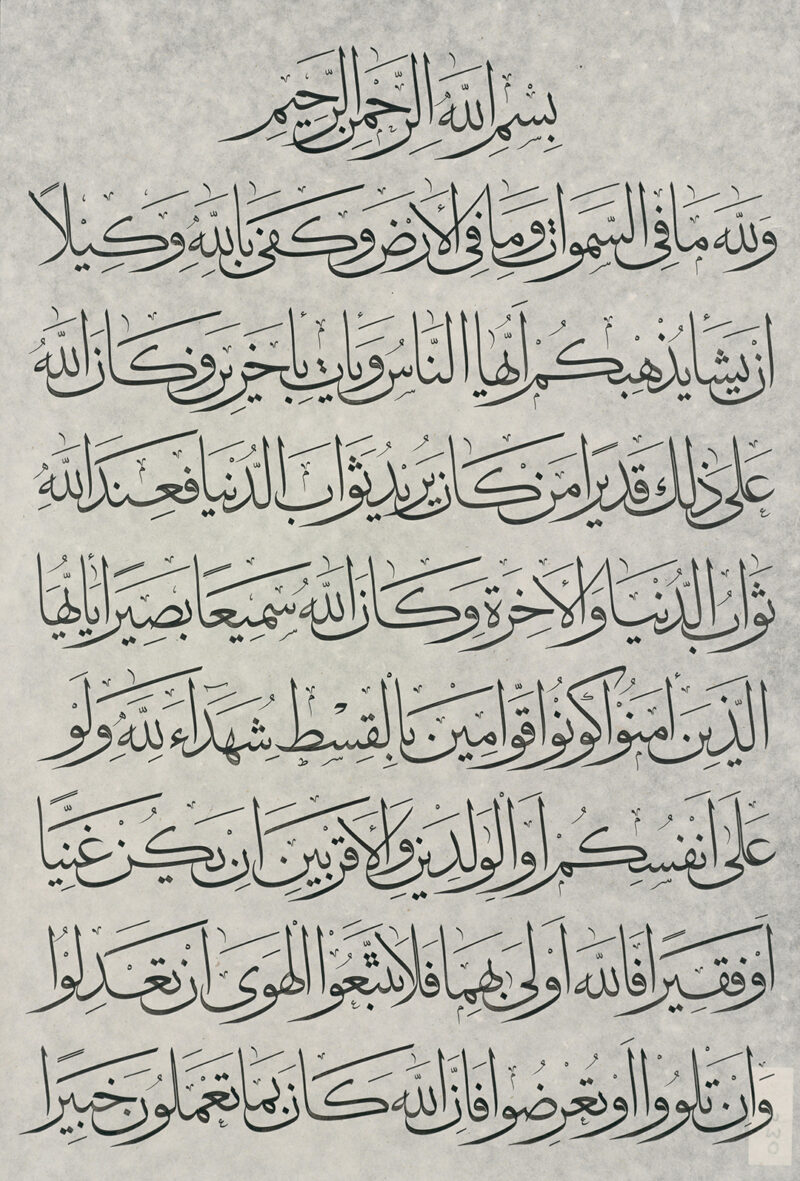 بِسْمِ اللَّهِ الرَّحْمَنِ الرَّحِيمِ
وَلِلَّهِ مَا فِي السَّمَوَاتِ وَمَا فِي الْأَرْضِ وَكَفَى بِاللَّهِ وَكِيلًا
اِنْ يَشَأْ يُذْهِبْكُمْ اَيُّهَا النَّاسُ وَيَأْتِ بِاٰخَرِينَ وَكَانَ اللَّهُ
عَلَى ذَلِكَ قَدِيرًا مَنْ كَانَ يُرِيدُ ثَوَابَ الدُّنْيَا فَعِنْدَ اللَّهِ
ثَوَابُ الدُّنْيَا وَالْاَخِرَةِ وَكَانَ اللَّهُ سَمِيعًا بَصِيرًا يَاأَيُّهَا
الَّذِينَ اٰمَنُوا كُونُوا قَوَّامِينَ بِالْقِسْطِ شُهَدَاءَ لِلَّهِ وَلَوْ
عَلَى اَنْفُسِكُمْ اَوِ الْوَالِدَيْنِ وَالْأَقْرَبِينَ اِنْ يَكُنْ غَنِيًّا
اَوْ فَقِيرًا فَاللَّهُ اَوْلَى بِهِمَا فَلَا تَتَّبِعُوا الْهَوَى اَنْ تَعْدِلُوا
وَاِنْ تَلْوُوا اَوْ تُعْرِضُوا فَاِنَّ اللَّهَ كَانَ بِمَا تَعْمَلُونَ خَبِيرًا